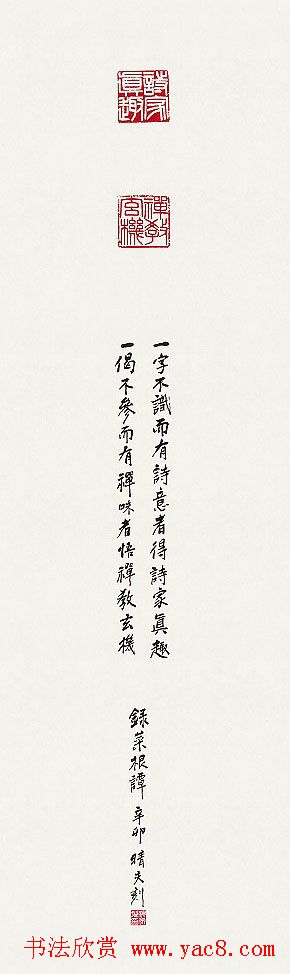 詩家
眞趣
禪教
玄機
一字不識而有詩意者得詩家眞趣
一偈不參而有禪味者悟禪教玄機
錄菜根譚 辛卯 晴夫刻
书法欣赏 www.yac8.com